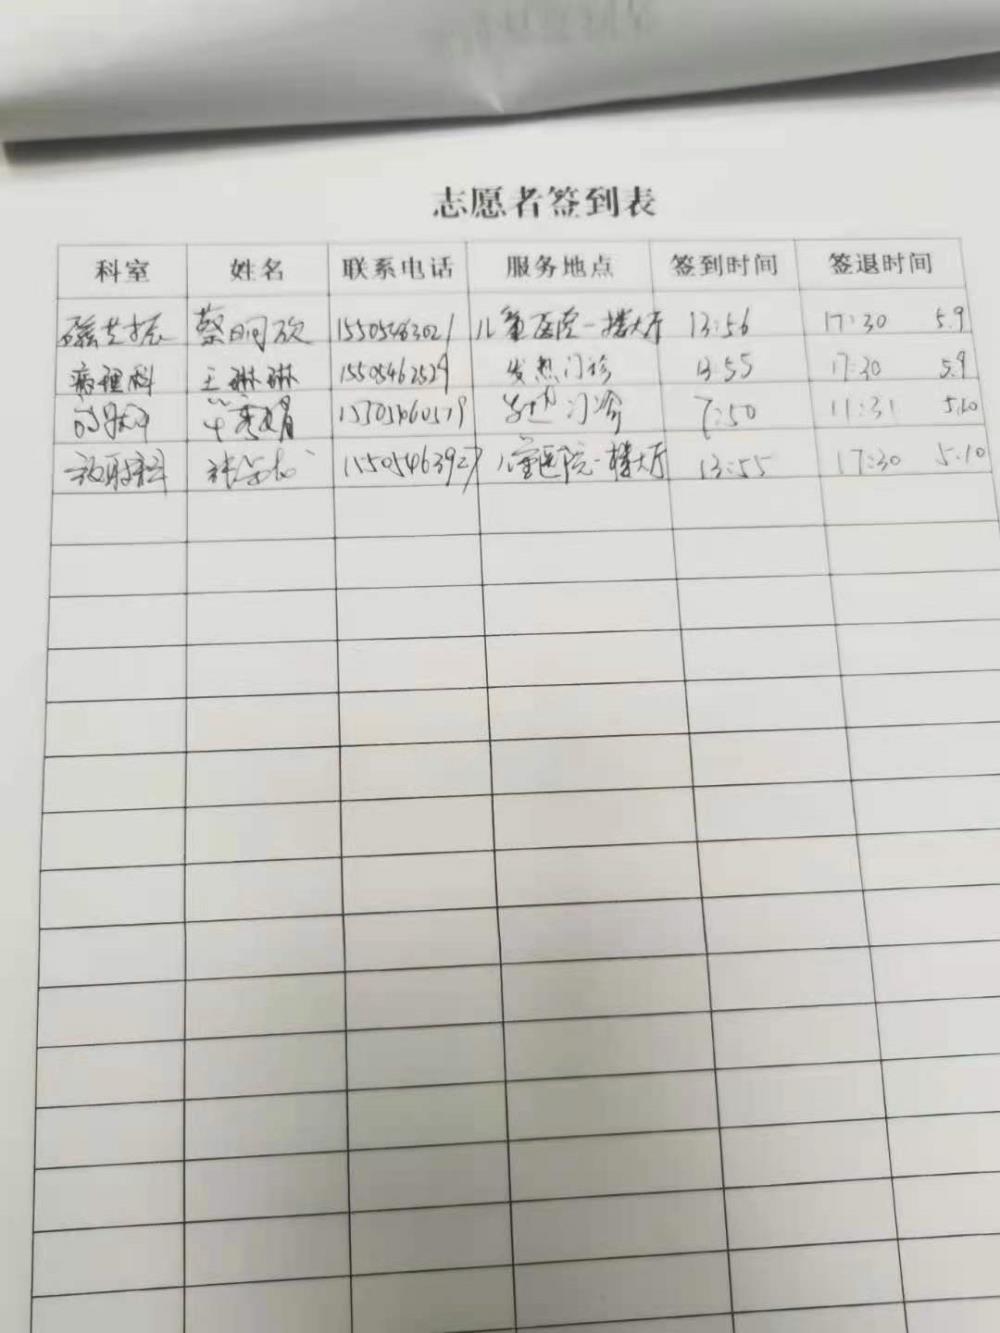 志愿者签到表
科室 姓名 联系电话 服务地点 签到时间 签退时间
磁共振 蔡明欣 15505463021 儿童医院一楼大厅 13:56 17:30 5.9
病理科 王琳琳 15505462529 发热门诊 13:55 17:30 5.9
发热门诊 7:50 11:31 5.10
放射科 15505463927 儿童医院一楼大厅 13:55 17:30 5.10